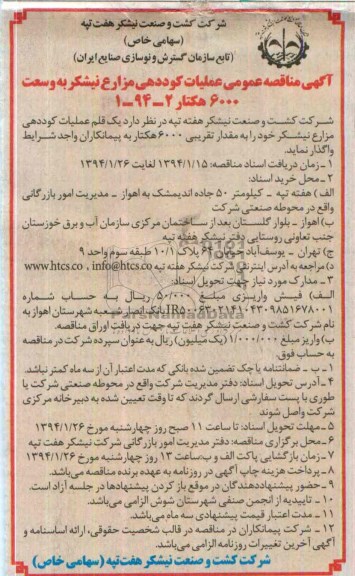 شرکت کشت و صنعت نیشکر هفت تپه
(سهامی خاص)
(تابع سازمان گسترش و نوسازی صنایع ایران)
آگهی مناقصه عمومی عملیات کوددهی مزارع نیشکر به وسعت
۶۰۰۰ هکتار ۲-۹۴-۱
شرکت کشت و صنعت نیشکر هفته تپه در نظر دارد یک قلم عملیات کوددهی
مزارع نیشکر خود را به مقدار تقریبی ۶۰۰۰ هکتار به پیمانکاران واجد شرایط
واگذار نماید.
۱- زمان دریافت اسناد مناقصه: ۱۳۹۴/۱/۱۵ لغایت ۱۳۹۴/۱/۲۶
۲- محل خرید اسناد:
الف) هفته تپه - کیلومتر ۵۰ جاده اندیمشک به اهواز - مدیریت امور بازرگانی
واقع در محوطه صنعتی شرکت
ب) اهواز - بلوار گلستان بعد از ساختمان مرکزی سازمان آب و برق خوزستان
جنب تعاونی روستایی دفتر نیشکر هفته تپه
ج) تهران - یوسف آباد خیابان ۶۴ پلاک ۱۰/۱ طبقه سوم واحد ۹
د) مراجعه به آدرس اینترنتی شرکت نیشکر هفته تپه www.htcs.co , info@htcs.co
۳- مدارک مورد نیاز جهت تحویل اسناد:
الف) فیش واریزی مبلغ ۵۰/۰۰۰ ریال به حساب شماره
IR۵۰۰۶۳۰۲۱۴۱۰۴۳۰۹۸۵۱۶۷۸۰۰۱ بانک انصار شعبه شهرستان اهواز به
نام شرکت کشت و صنعت نیشکر هفت تپه جهت دریافت اوراق مناقصه.
ب) واریز مبلغ ۱/۰۰۰/۰۰۰ (یک میلیون) ریال به عنوان سپرده شرکت در مناقصه
به حساب فوق.
۱- ب - ضمانتنامه یا چک تضمین شده بانکی که مدت اعتبار آن از سه ماه کمتر نباشد.
۴- آدرس تحویل اسناد: دفتر مدیریت شرکت واقع در محوطه صنعتی شرکت یا
طوری با پست سفارشی ارسال گردند که تا وقت تعیین شده به دبیرخانه مرکزی
شرکت واصل شوند
۵- مهلت تحویل اسناد: تا ساعت ۱۱ صبح روز چهارشنبه مورخ ۱۳۹۴/۱/۲۶
۶- محل برگزاری مناقصه: دفتر مدیریت امور بازرگانی شرکت نیشکر هفت تپه
۷- زمان بازگشایی پاکت الف و ب ساعت ۱۳ روز چهارشنبه مورخ ۱۳۹۴/۱/۲۶
۸- پرداخت هزینه چاپ آگهی در روزنامه به عهده برنده مناقصه می باشد.
۹- حضور پیشنهاد دهندگان در موقع باز کردن پیشنهادها در جلسه آزاد است.
۱۰- تاییدیه از انجمن صنفی شهرستان شوش الزامی می باشد.
۱۱- مدت اعتبار قیمت پیشنهادی سه ماه می باشد.
۱۲- شرکت پیمانکاران در مناقصه در قالب شخصیت حقوقی، ارائه اساسنامه و
آگهی آخرین تغییرات روزنامه الزامی می باشد.
شرکت کشت و صنعت نیشکر هفت تپه (سهامی خاص)